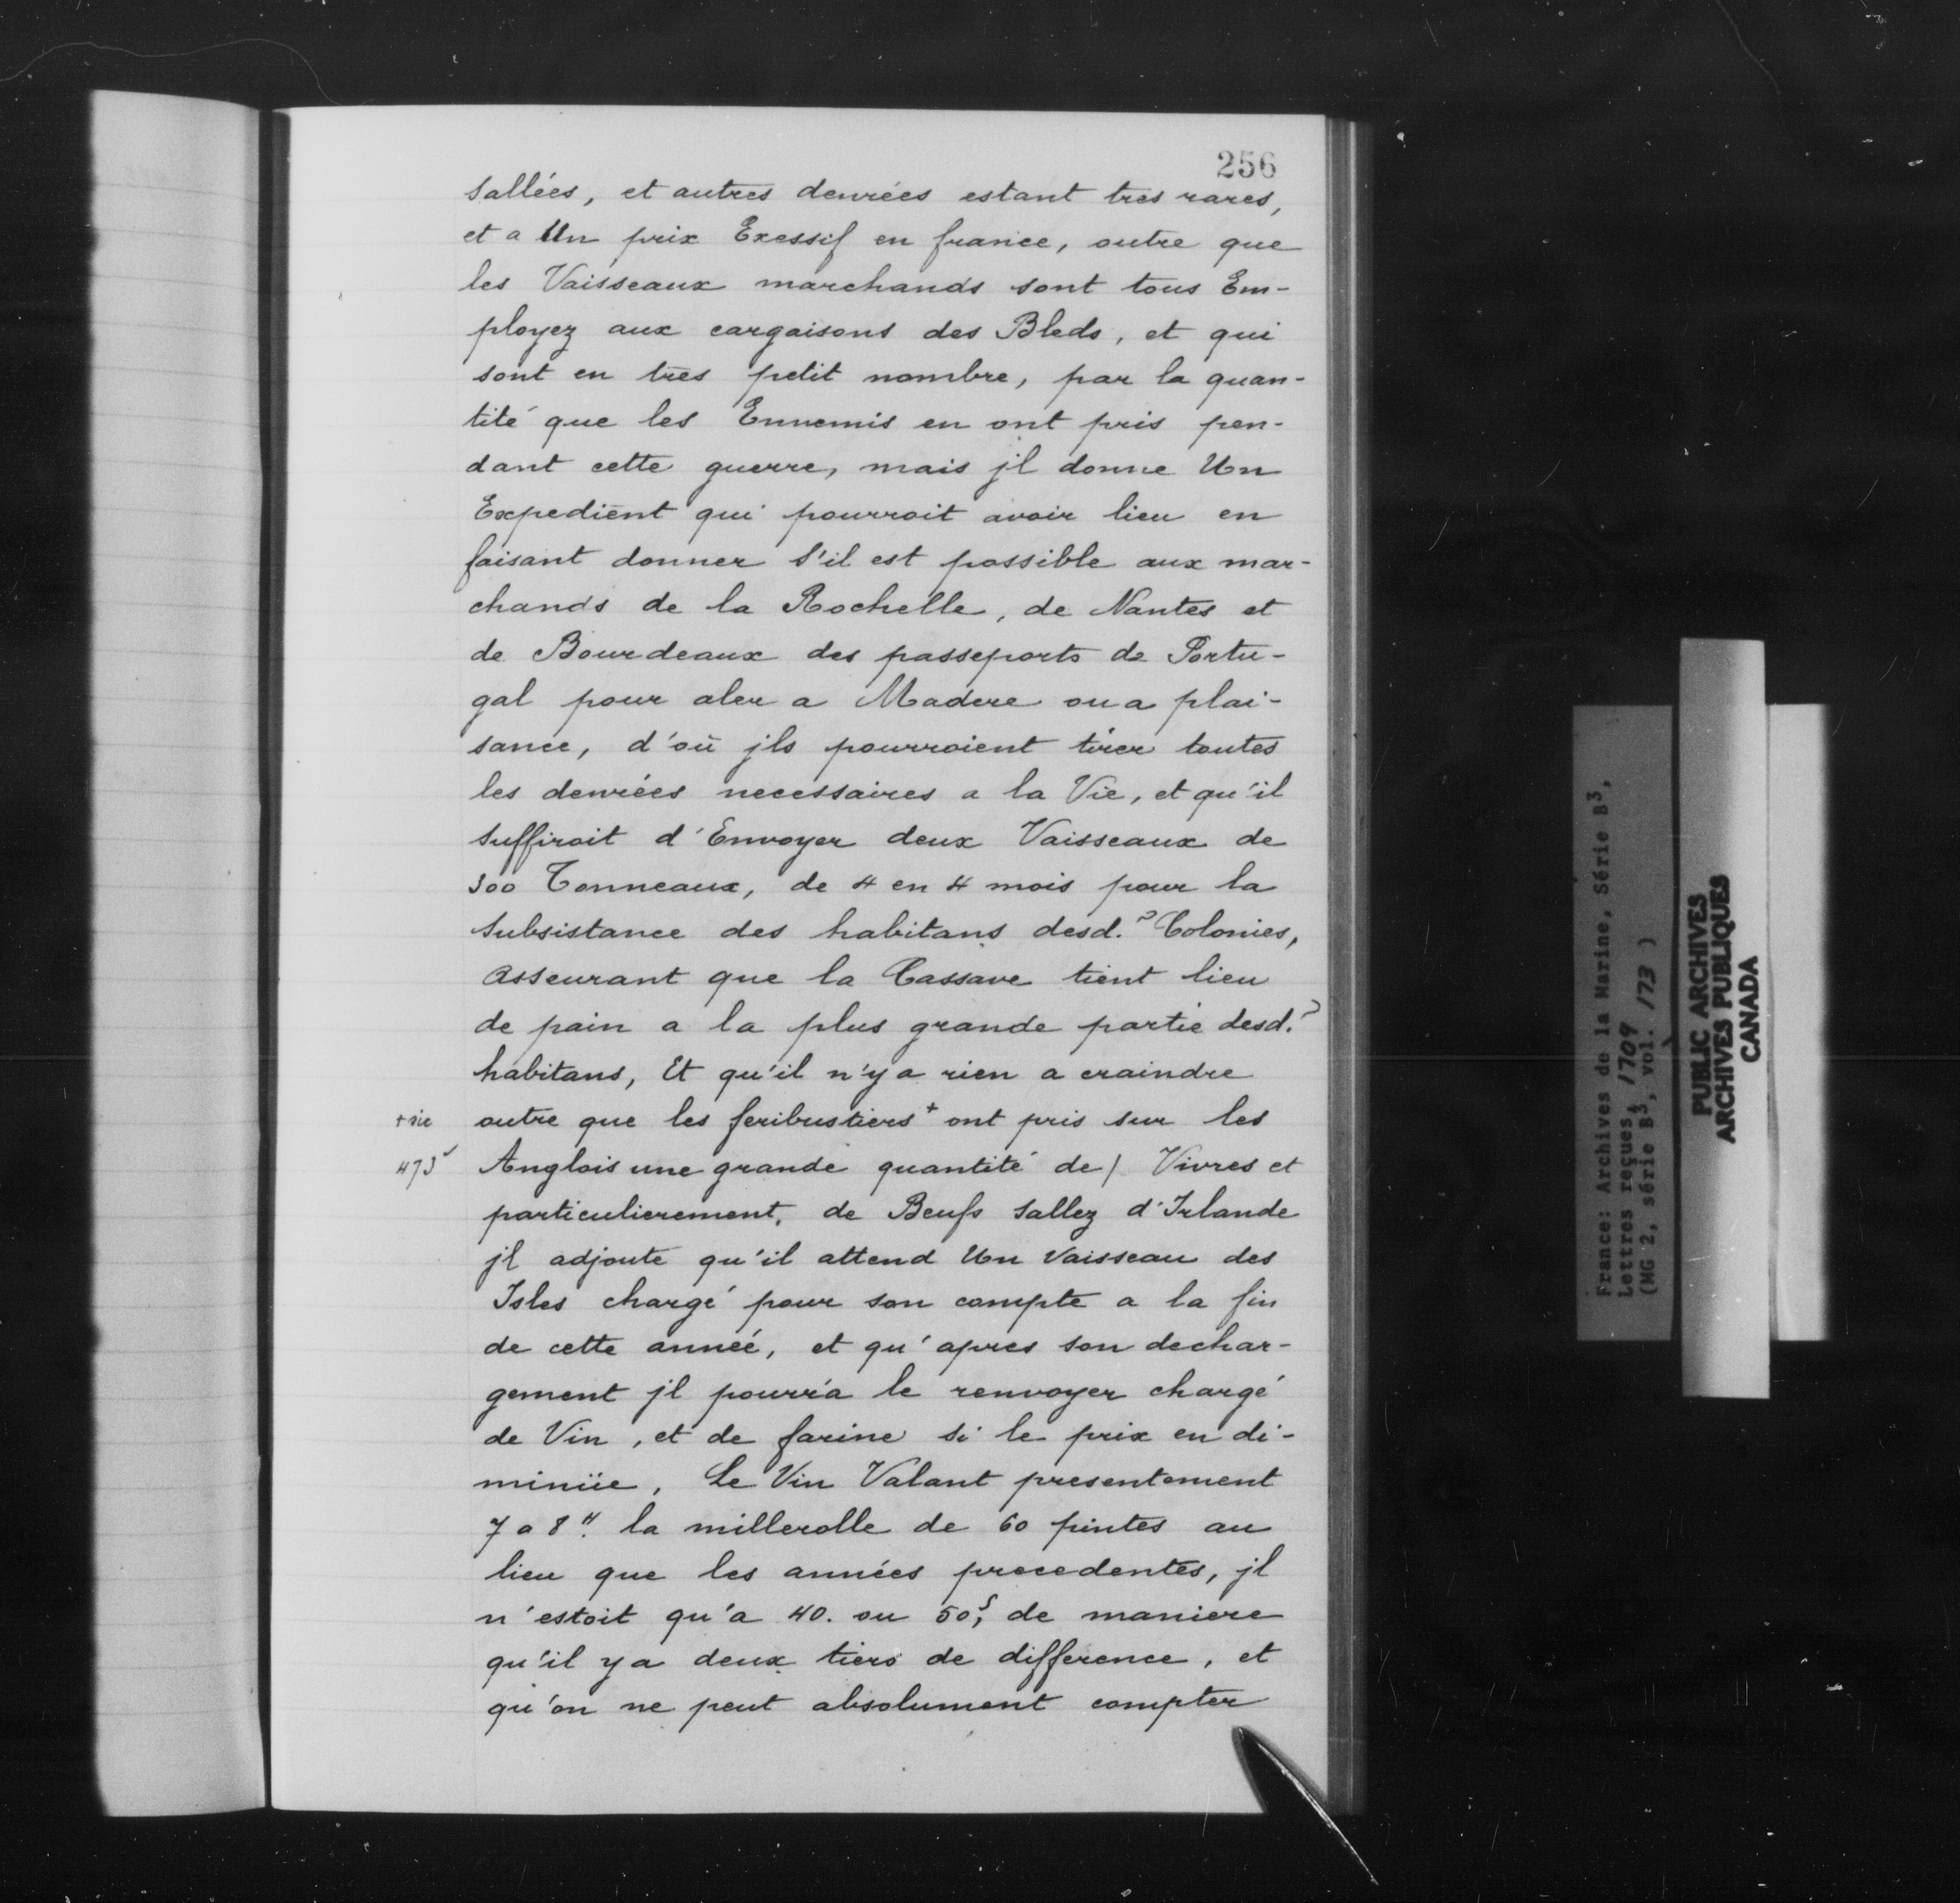 256
sallées, et autres denrées estant tres rares,
et a Un prix Exessif en france, outre que
les Vaisseaux marchands sont tous Em-
ployez aux cargaisons des Bleds, et qui
sont en tres petit nombre, par la quan-
tité que les Ennemis en ont pris pen-
dant cette guerre, mais jl donne Un
Expedient qui pourroit avoir lieu en
faisant donner s'il est possible aux mar-
chands de la Rochelle, de Nantes et
de Bourdeaux des passeports de Portu-
gal pour aler a Madere ou a plai-
sance, d'où jls pourroient tirer toutes
les denrées necessaires a la Vie, et qu'il
suffiroit d'Envoyer deux Vaisseaux de
300 Tonneaux, de 4 en 4 mois pour la
subsistance des habitans desd. Colonies,
asseurant que la Cassave tient lieu
de pain a la plus grande partie desd.
habitans, Et qu'il n'y a rien a craindre
+sic outre que les feribustiers+ ont pris sur les
473v Anglois une grande quantité de/ Vivres et
particulierement, de Beufs sallez d'Irlande
jl adjoute qu'il attend Un Vaisseau des
Isles chargé pour son compte a la fin
de cette année, et qu'apres son dechar-
gement jl pourra le renvoyer chargé
de Vin, et de farine si le prix en di-
minüe, Le Vin Valant presentement
7 a 8# la millerolle de 60 pintes au
lieu que les années precedentes, jl
n'estoit qu'a 40. ou 50s, de maniere
qu'il y a deux tiers de difference, et
qu'on ne peut absolument compter
France: Archives de la Marine, Série B3,
Lettres reçues, 1709
(MG 2, série B3, vol. 173 )
PUBLIC ARCHIVES
ARCHIVES PUBLIQUES
CANADA